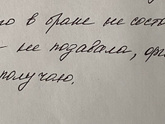 в браке не сост
не подавала, фи
получаю.